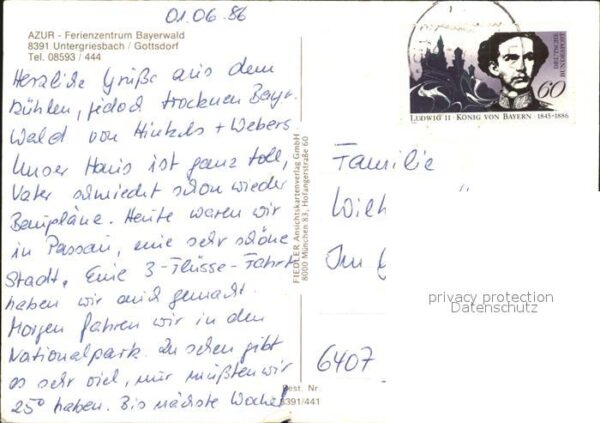 01.06.86
AZUR - Ferienzentrum Bayerwald
8391 Untergriesbach / Gottsdorf
Tel. 08593 / 444
Herzliche Grüße aus dem
kühlen, jedoch trockenen Bayr.
Wald von Hinkels + Webers.
Unser Haus ist ganz toll,
Vater schmiedet schon wieder
Baupläne. Heute waren wir
in Passau, eine sehr schöne
Stadt. Eine 3-Flüsse-Fahrt
haben wir auch gemacht.
Morgen fahren wir in den
Nationalpark. Zu sehen gibt
es sehr viel, nur müßten wir
25° haben. Bis nächste Woche!
FIEDLER Ansichtskartenverlag GmbH
8000 München 83, Hofangerstraße 60
Best. Nr
8391/441
DEUTSCHE
BUNDESPOST
60
LUDWIG II · KÖNIG VON BAYERN · 1845-1886
Familie
Wilh
Im
6407
privacy protection
Datenschutz